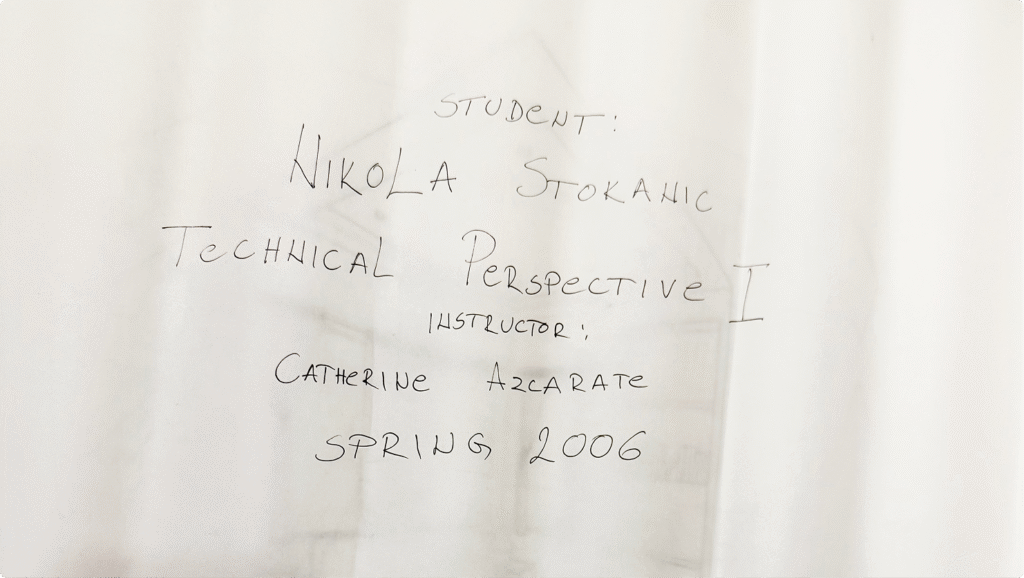 STUDENT:
NIKOLA STOKANIC
TeCHNICAL PeRSPeCTIVe I
INSTRUCTOR:
CATHeRINe AZCARATe
SPRING 2006